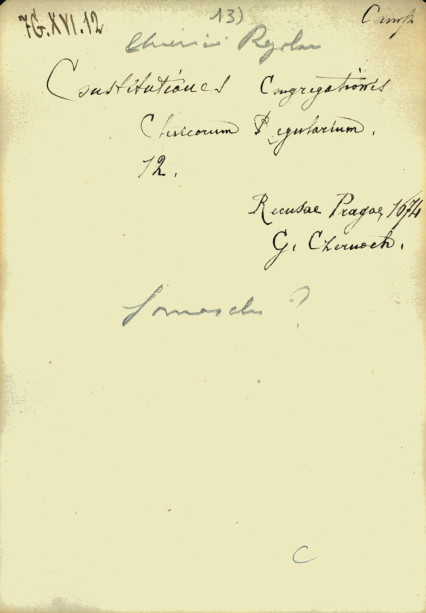 13)
7G.XVI.12
Chierici Regolari
Constitutiones Congregationis
Clericorum Regularium.
12.
Recusae Pragae, 1674
G. Czernoch.
Somaschi ?
C